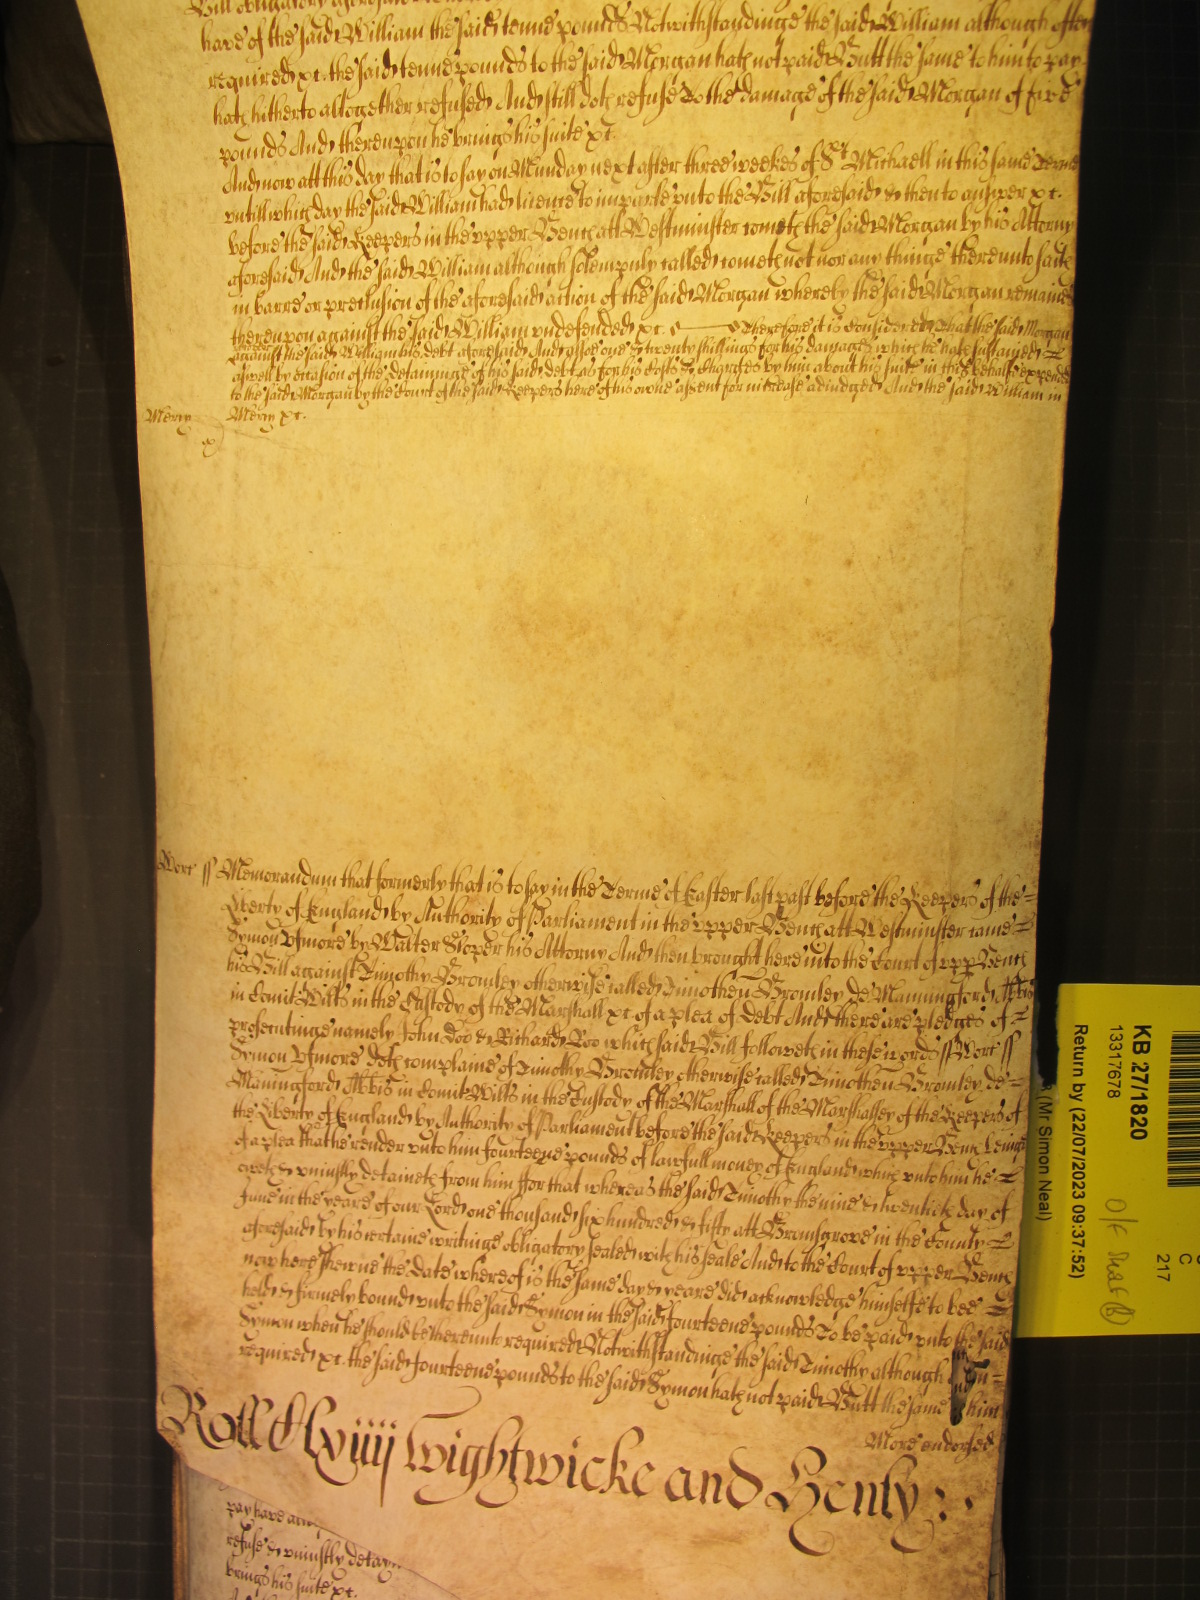 Bill obligatory aforesaid
have of the said William the said tenne pounds Notwithstandinge the said William although often
required &c. the said tenne pounds to the said Morgan hath not paid Butt the same to him to pay
hath hitherto altogether refused And still doth refuse To the damage of the said Morgan of five
pounds And thereupon he brings his suite &c.
And now att this day that is to say on Munday next after three weekes of St Michaell in this same Terme
untill which day the said William had licence to imparle unto the Bill aforesaid & then to answer &c.
before the said Keepers in the upper Bench att Westminster cometh the said Morgan by his Attorny
aforesaid And the said William although solempnly called cometh not nor any thinge thereunto saith
in barre or preclusion of the aforesaid action of the said Morgan whereby the said Morgan remaines
thereupon against the said William undefended &c. Therefore it is Considered That the said Morgan
against the said William his debt aforesaid And alsoe one & twenty shillings for his damages which he hath sustained
aswell by occasion of the detayninge of his said debt as for his Costs & Charges by him about his suite in this behalfe expended
to the said Morgan by the Court of the said Keepers here of his owne assent for increase adiudged And the said William in
Mercy
Mercy &c.
Worc ss Memorandum that formerly that is to say in the Terme of Easter last past before the Keepers of the
Liberty of England by Authority of Parliament in the upper Bench att Westminster came
Symon Ufmore by Walter Sloper his Attorny And then brought here into the Court of upp Bench
his Bill against Timothy Bromley otherwise called Timotheu Bromley de Manningford Abbis
in Comit Wilts in the Custody of the Marshall &c. of a plea of Debt And there are pledges of
prosecutinge namely John Doo & Richard Roo which said Bill followeth in these words ss Worc ss
Symon Ufmore doth complaine of Timothy Bromley otherwise called Timotheu Bromley de
Maningford Abbis in Comit Wilts in the Custody of the Marshall of the Marshalsey of the Keepers of
the Liberty of England by Authority of Parliament before the said Keepers in the upper Bench beinge
of a plea that he render unto him fourteene pounds of lawfull money of England which unto him he
oweth & uniustly detaineth from him ffor that whereas the said Timothy the nine & twentieth day of
June in the yeare of our Lord one thousand six hundred & fifty att Bromsgrove in the County
aforesaid by his certaine writinge obligatory sealed with his seale And to the Court of upper Bench
now here shewne the Date whereof is the same day & yeare did acknowledge himselfe to bee
held & firmely bound unto the said Symon in the said fourteene pounds To be paid unto the said
Symon when he should be thereunto required Notwithstandinge the said Timothy although
required &c. the said fourteene pounds to the said Symon hath not paid Butt the same him
More endorsed
Roll Clxiiij Wightwicke and Henly
pay have
refuse & uniustly detay
brings his suite &c.
KB 271820
13317678
(Mr Simon Neal)
Return by (22/07/2023 09:37:52)
C
217